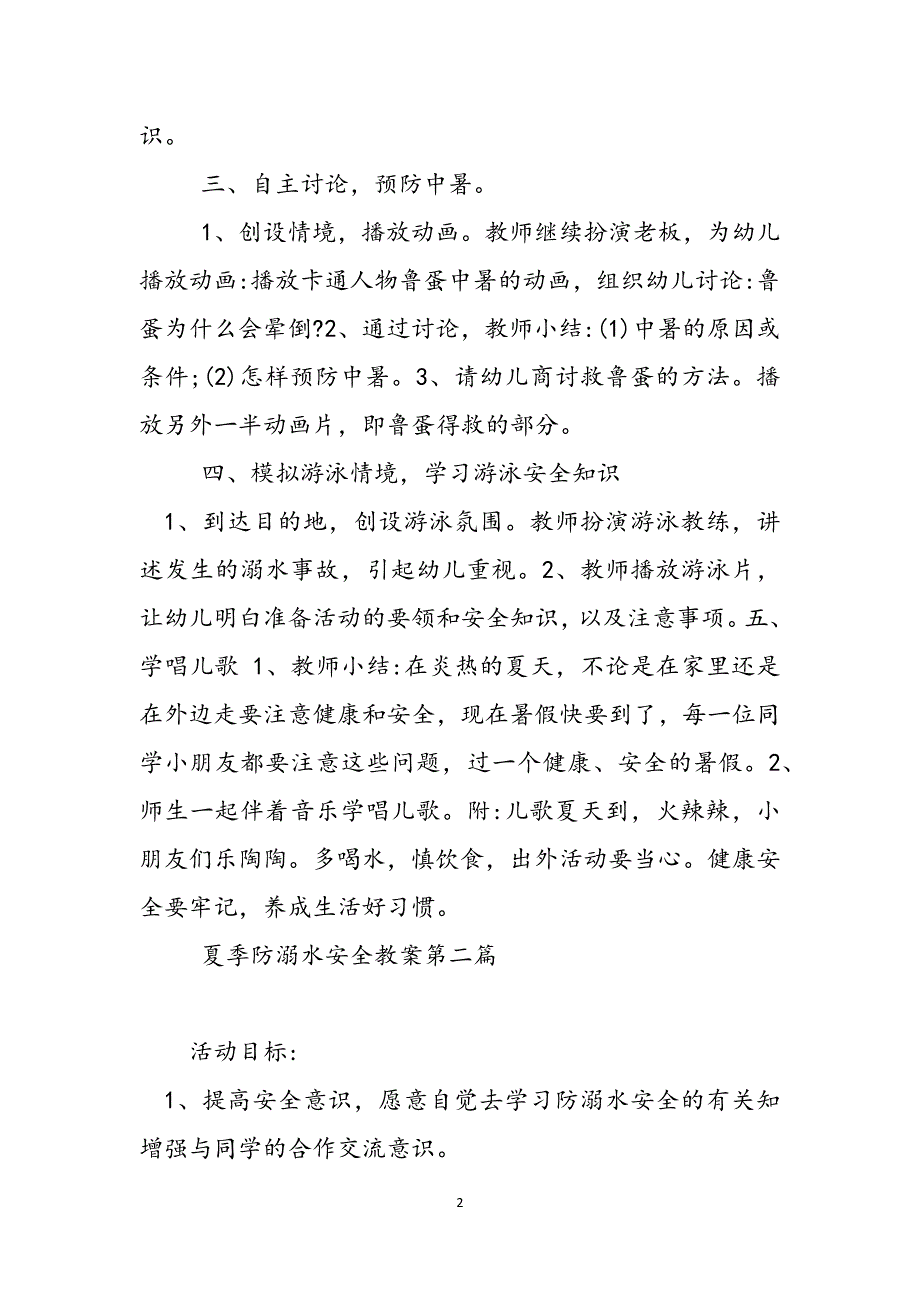 识。
三、自主讨论，预防中暑。
1、创设情境，播放动画。教师继续扮演老板，为幼儿
播放动画:播放卡通人物鲁蛋中暑的动画，组织幼儿讨论:鲁
蛋为什么会晕倒?2、通过讨论，教师小结:(1)中暑的原因或
条件;(2)怎样预防中暑。3、请幼儿商讨救鲁蛋的方法。播
放另外一半动画片，即鲁蛋得救的部分。
四、模拟游泳情境，学习游泳安全知识
1、到达目的地，创设游泳氛围。教师扮演游泳教练，讲
述发生的溺水事故，引起幼儿重视。2、教师播放游泳片，
让幼儿明白准备活动的要领和安全知识，以及注意事项。五、
学唱儿歌 1、教师小结:在炎热的夏天，不论是在家里还是
在外边走要注意健康和安全，现在暑假快要到了，每一位同
学小朋友都要注意这些问题，过一个健康、安全的暑假。2、
师生一起伴着音乐学唱儿歌。附:儿歌夏天到，火辣辣，小
朋友们乐陶陶。多喝水，慎饮食，出外活动要当心。健康安
全要牢记，养成生活好习惯。
夏季防溺水安全教案第二篇
活动目标:
1、提高安全意识，愿意自觉去学习防溺水安全的有关知
增强与同学的合作交流意识。
2